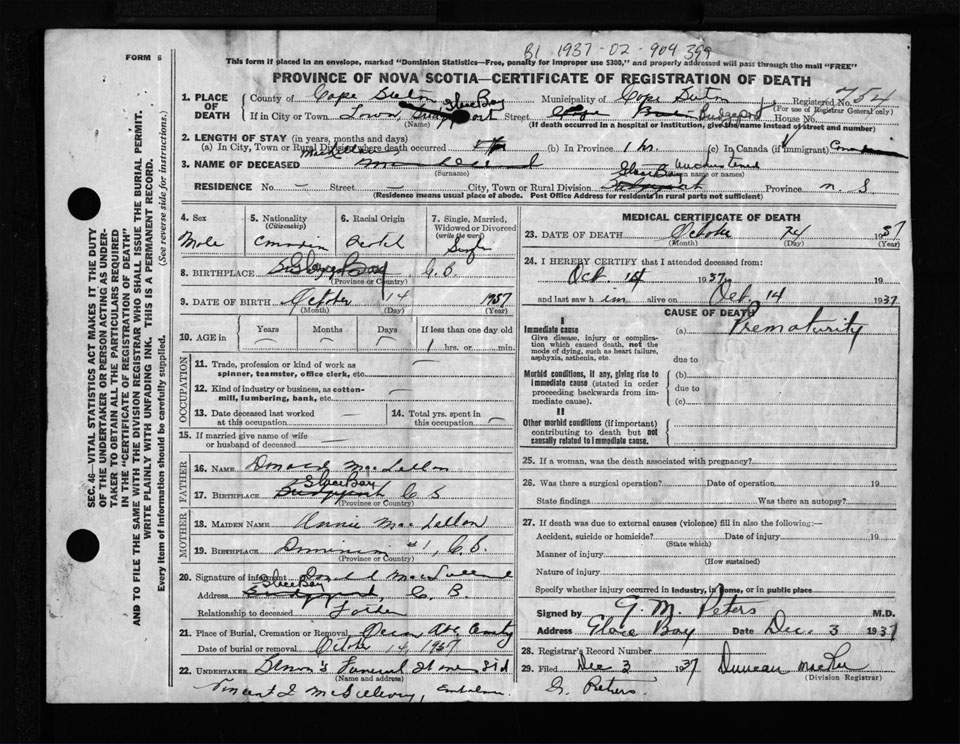 B1 1937-02-909 399
FORM 6
This form if placed in an envelope, marked "Dominion Statistics—Free, penalty for improper use $300," and properly addressed will pass through the mail "FREE"
PROVINCE OF NOVA SCOTIA—CERTIFICATE OF REGISTRATION OF DEATH
Registered No. 754
(For use of Registrar General only)
1. PLACE OF DEATH
County of Cape Breton Municipality of Cape Breton
If in City or Town Glace Bay Street House No.
(If death occurred in a hospital or institution, give the name instead of street and number)
2. LENGTH OF STAY (in years, months and days)
(a) In City, Town or Rural Division where death occurred (b) In Province 1 hr. (c) In Canada (if immigrant)
3. NAME OF DECEASED
(Surname) (Given name or names)
RESIDENCE No. — Street — City, Town or Rural Division Glace Bay Province N S
(Residence means usual place of abode. Post Office Address for residents in rural parts not sufficient)
4. Sex
Male
5. Nationality
(Citizenship)
6. Racial Origin
7. Single, Married, Widowed or Divorced
(write the word)
8. BIRTHPLACE Glace Bay C.B.
(Province or Country)
9. DATE OF BIRTH October 14 1937
(Month) (Day) (Year)
10. AGE in
Years Months Days If less than one day old
— — — 1 hrs. or min.
OCCUPATION
11. Trade, profession or kind of work as spinner, teamster, office clerk, etc. —
12. Kind of industry or business, as cotton-mill, lumbering, bank, etc. —
13. Date deceased last worked at this occupation —
14. Total yrs. spent in this occupation —
15. If married give name of wife or husband of deceased —
FATHER
16. NAME Donald MacLellan
17. BIRTHPLACE Glace Bay
(Province or Country)
MOTHER
18. MAIDEN NAME Annie MacLellan
19. BIRTHPLACE Dominion #1, C.B.
(Province or Country)
20. Signature of informant Donald
Address Glace Bay C. B.
Relationship to deceased Father
21. Place of Burial, Cremation or Removal
Date of burial or removal October 14, 1937
22. UNDERTAKER Funeral Home
(Name and address)
Vincent
MEDICAL CERTIFICATE OF DEATH
23. DATE OF DEATH October 1937
(Month) (Day) (Year)
24. I HEREBY CERTIFY that I attended deceased from:
Oct. 14 1937 19
and last saw him alive on Oct. 14 1937
CAUSE OF DEATH
I
Immediate cause
Give disease, injury or complication which caused death, not the mode of dying, such as heart failure, asphyxia, asthenia, etc.
(a) Prematurity
due to
Morbid conditions, if any, giving rise to immediate cause (stated in order proceeding backwards from immediate cause).
(b)
due to
(c)
II
Other morbid conditions (if important) contributing to death but not causally related to immediate cause.
25. If a woman, was the death associated with pregnancy?
26. Was there a surgical operation? Date of operation 19
State findings Was there an autopsy?
27. If death was due to external causes (violence) fill in also the following:—
Accident, suicide or homicide? Date of injury 19
(State which)
Manner of injury
(How sustained)
Nature of injury
Specify whether injury occurred in Industry, in home, or in public place
Signed by G. M. Peters M.D.
Address Glace Bay Date Dec. 3 1937
28. Registrar's Record Number
29. Filed Dec 3 1937 Duncan
(Division Registrar)
G. Peters.
SEC. 46—VITAL STATISTICS ACT MAKES IT THE DUTY
OF THE UNDERTAKER OR PERSON ACTING AS UNDER-
TAKER TO OBTAIN ALL THE PARTICULARS REQUIRED
IN THE "CERTIFICATE OF REGISTRATION OF DEATH"
AND TO FILE THE SAME WITH THE DIVISION REGISTRAR WHO SHALL ISSUE THE BURIAL PERMIT.
WRITE PLAINLY WITH UNFADING INK. THIS IS A PERMANENT RECORD.
Every item of information should be carefully supplied. (See reverse side for instructions.)